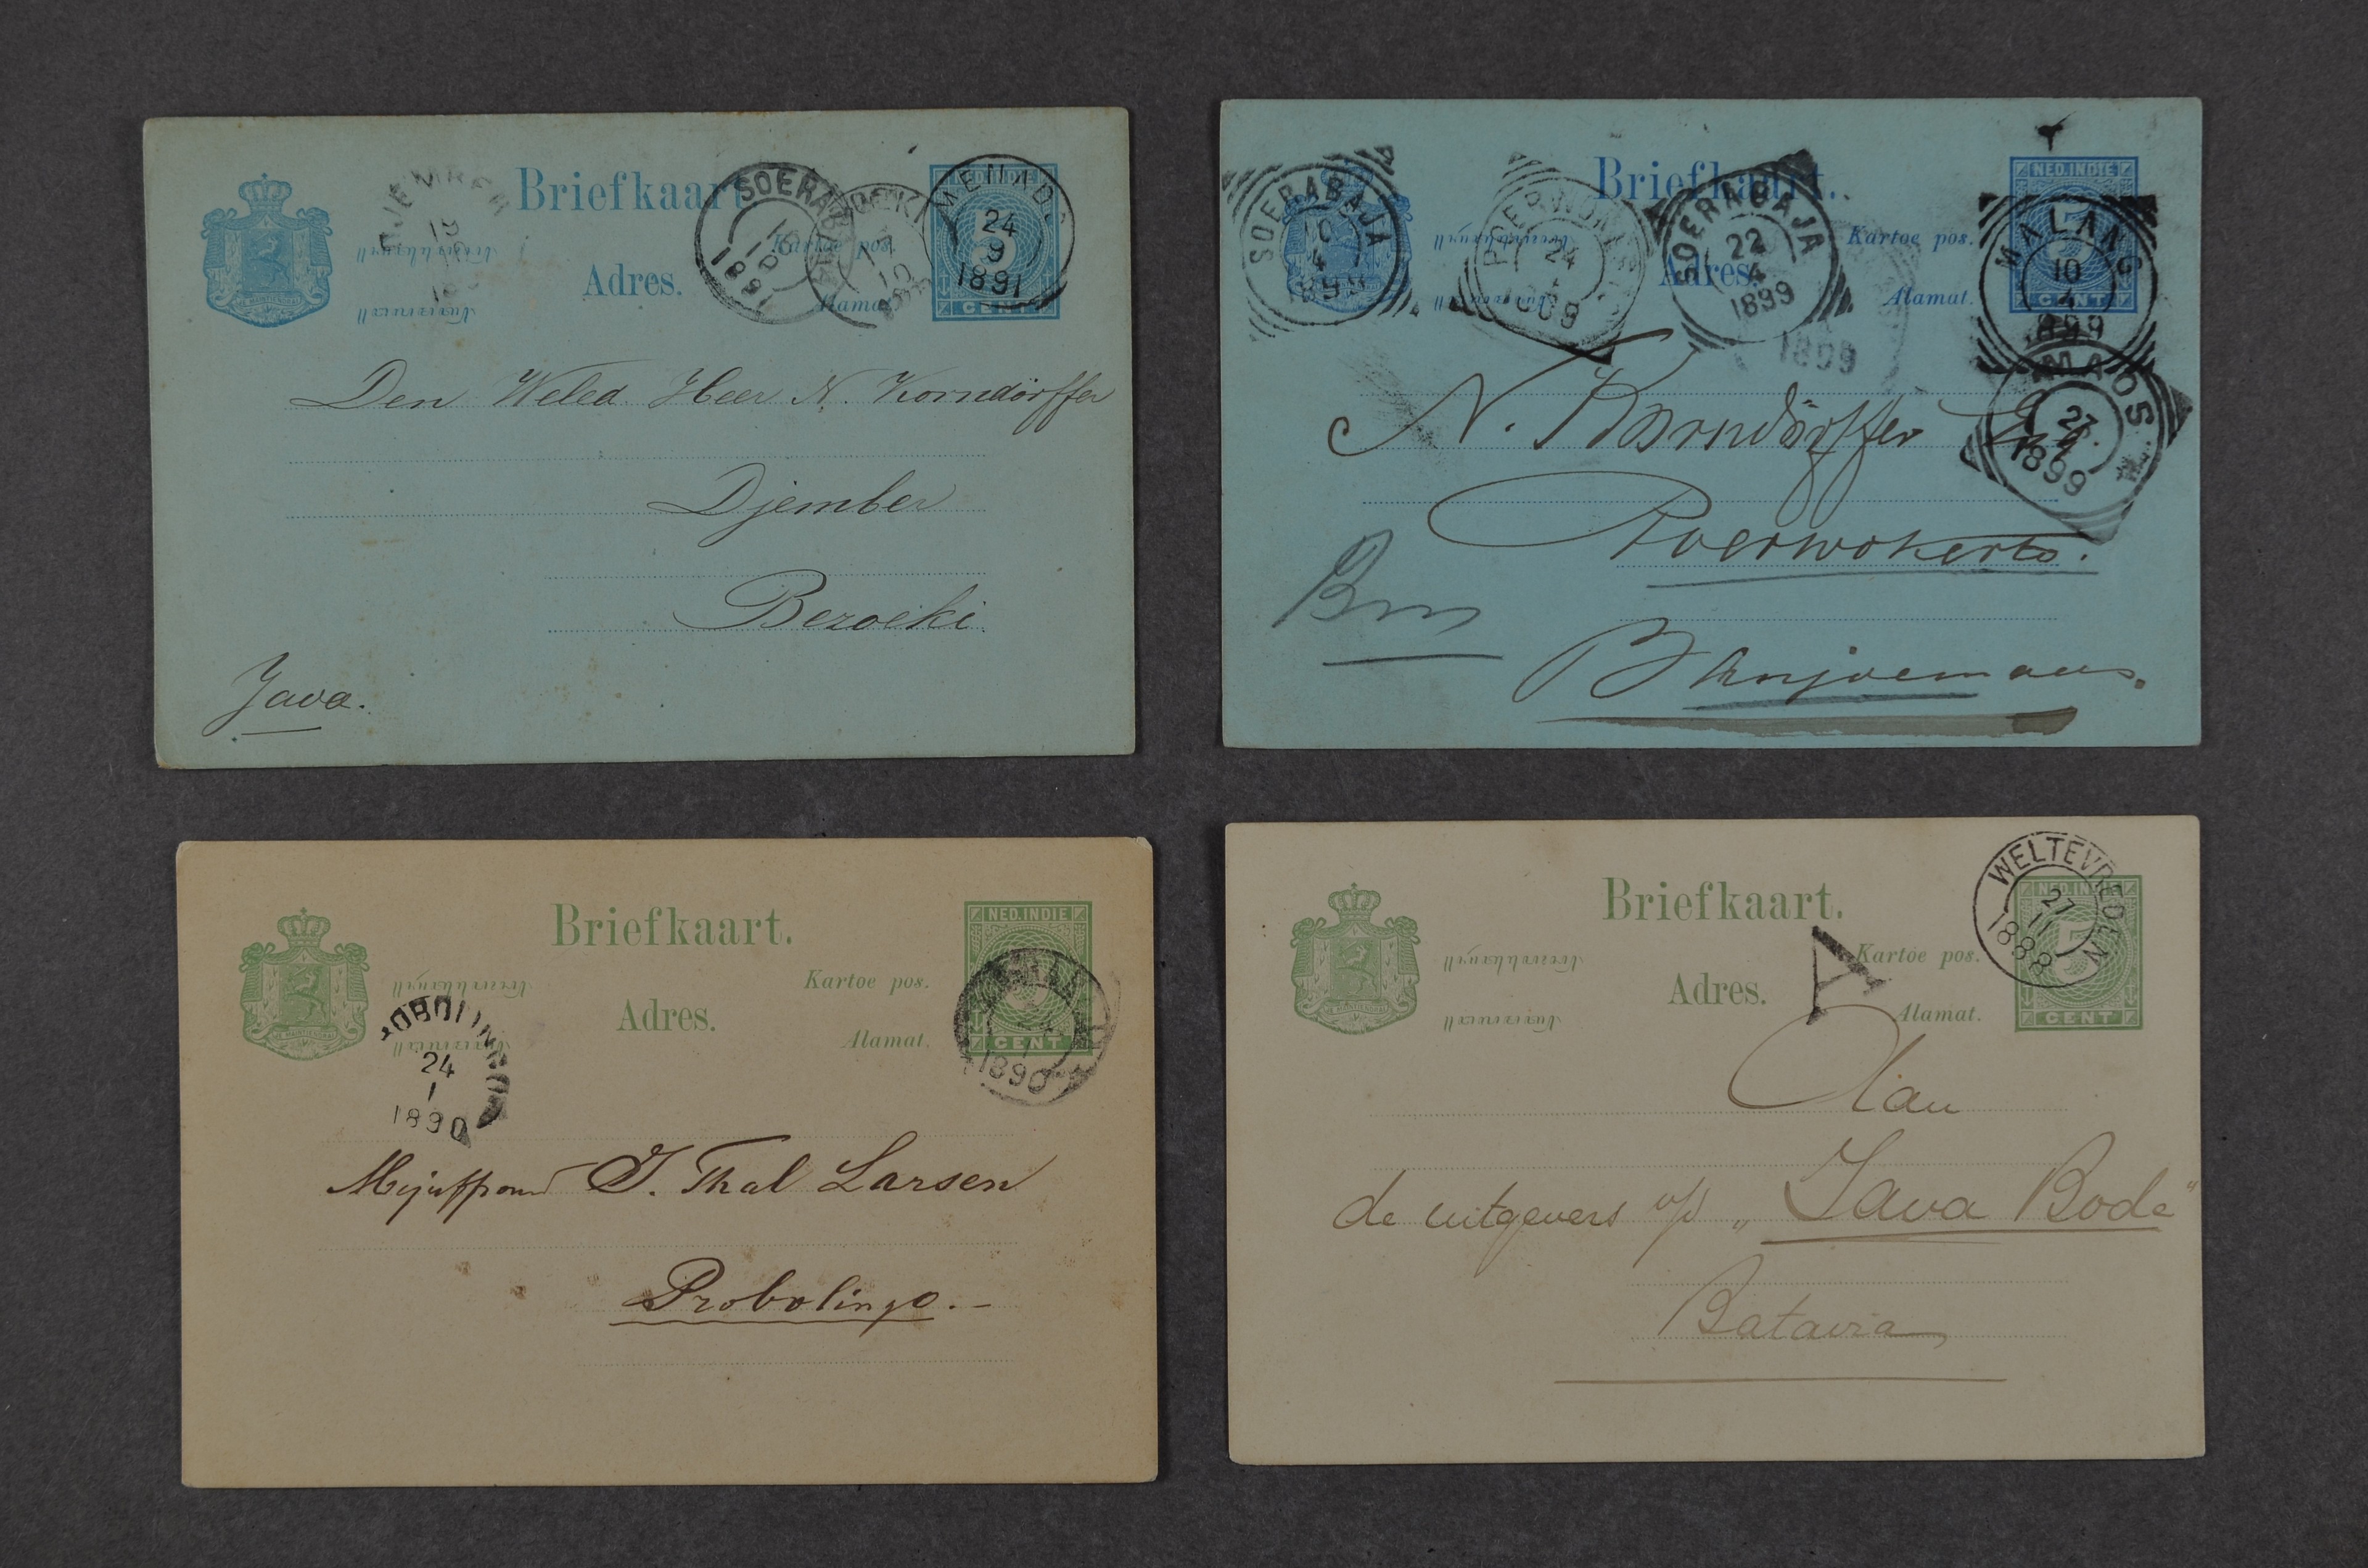 Briefkaart.
DJEMBER
SOERABAJA
1891
MENADO
24
9
1891
CENT
Kartoe pos.
Adres.
Alamat.
JE MAINTIENDRAI
Den Weled. Heer N. Korndörffer
Djember
Bezoeki
Java.
Briefkaart.
NED. INDIE
5
CENT
SOERABAJA
10
4
1899
24
SOERABAJA
22
4
1899
1899
Kartoe pos.
Adres.
Alamat.
MALANG
10
4
1899
MAOS
1899
N. Korndörffer
Poerwokerto.
Banjoemaas.
Briefkaart.
NED. INDIE
5
CENT
Kartoe pos.
Adres.
Alamat.
JE MAINTIENDRAI
PROBOLINGGO
24
1
1890
1890
Mejuffrouw J. Thal Larsen
Probolingo.-
Briefkaart.
NED. INDIE
5
CENT
WELTEVREDEN
27
11
1888
Kartoe pos.
A
Adres.
Alamat.
JE MAINTIENDRAI
Aan
de uitgevers v/d „Java Bode"
Batavia